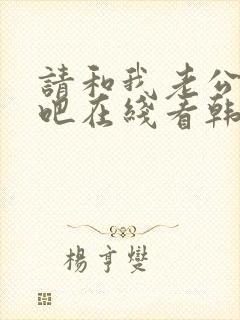 請和我老公
吧在綫看韩
楊亨燮